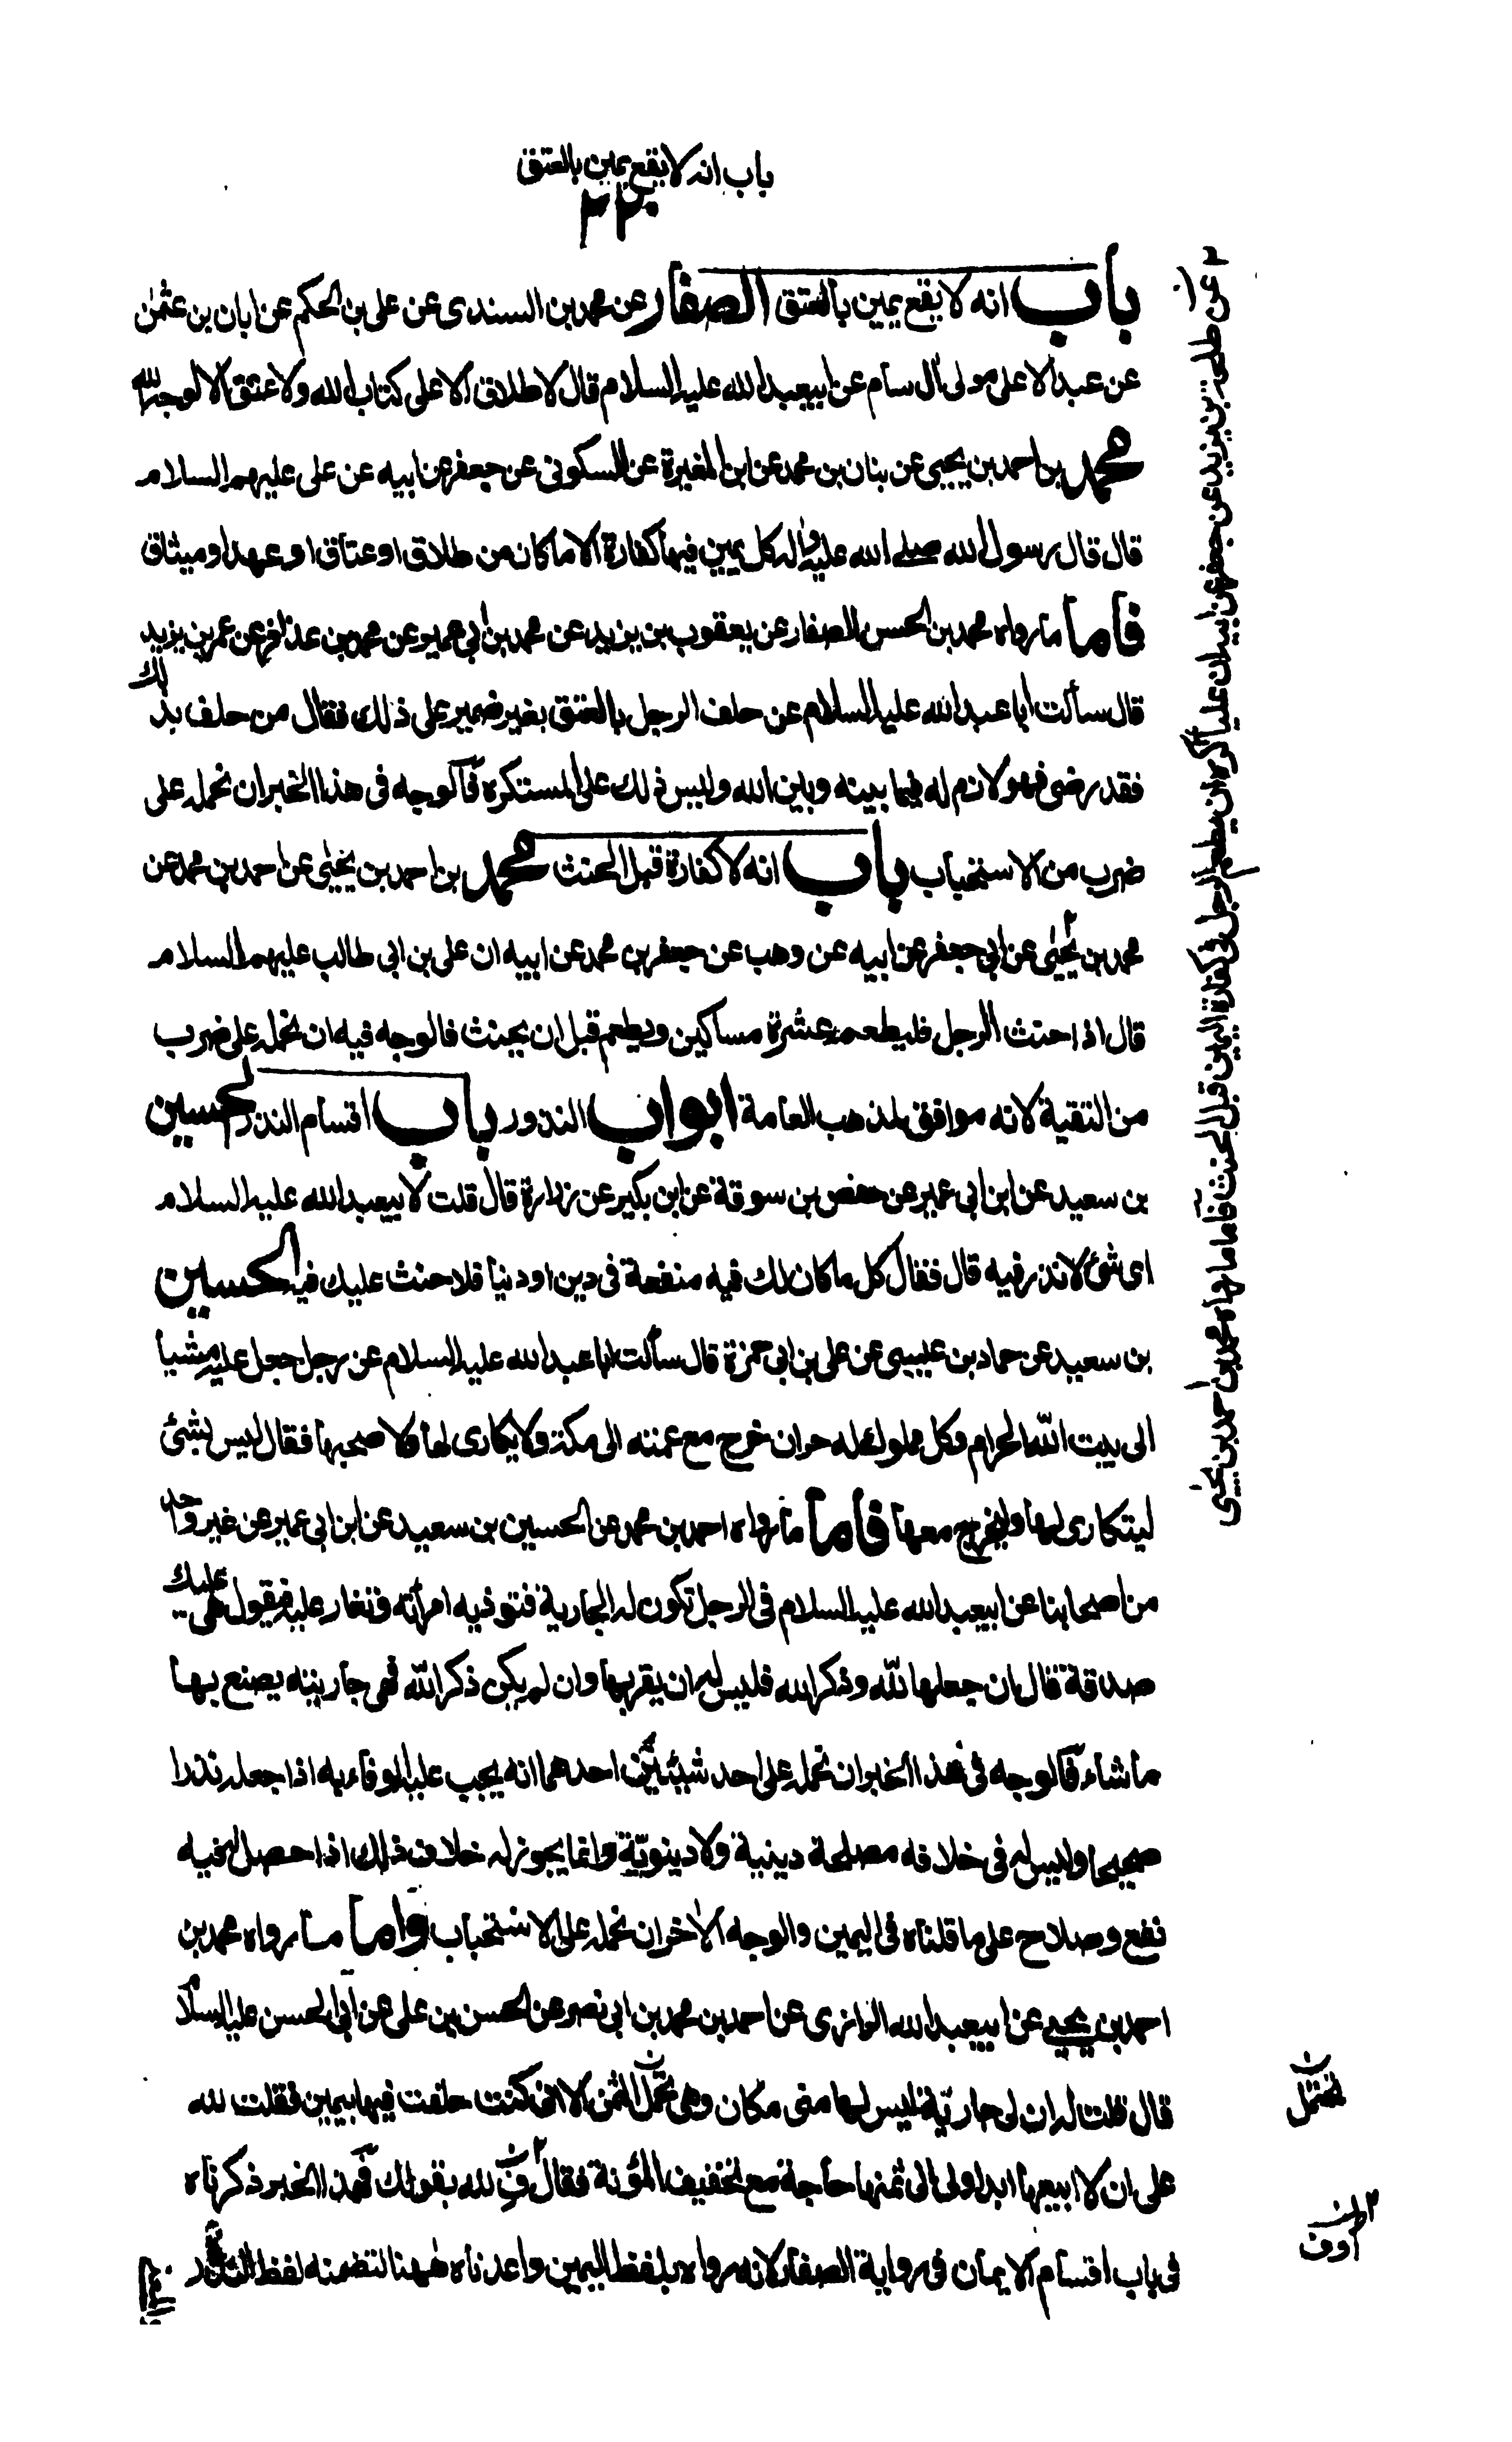 باب انه لا يقع يمين بالعتق
٢٢٠
باب انه لا يقع يمين بالعتق الصفار عن محمد بن السندى عن على بن الحكم عن ابان بن عثمٰن
عن عبد الاعلى مولى آل سام عن ابيعبد الله عليه السلام قال لا طلاق الا على كتاب الله ولا عتق الا لوجه الله
محمد بن احمد بن يحيى عن بنان بن محمد عن ابن المغيرة عن السكونى عن جعفر عن ابيه عن على عليهم السلام
قال قال رسول الله صلى الله عليه واله كل يمين فيها كفارة الا ما كان من طلاق او عتاق او عهد او ميثاق
فاما ما رواه محمد بن الحسن الصفار عن يعقوب بن يزيد عن محمد بن ابى عمير عن محمد بن عذافر عن عمر بن يزيد
قال سألت ابا عبد الله عليه السلام عن حلف الرجل بالعتق بغير ضمير على ذلك فقال من حلف بذلك
فقد رضى فهو لازم له فيما بينه وبين الله وليس ذلك على المستكره فالوجه فى هذا الخبر ان نحمله على
ضرب من الاستحباب باب انه لا كفارة قبل الحنث محمد بن احمد بن يحيٰى عن احمد بن محمد عن
محمد بن يحيٰى عن ابى جعفر عن ابيه عن وهب عن جعفر بن محمد عن ابيه ان على بن ابى طالب عليهم السلام
قال اذا حنث الرجل فليطعم عشرة مساكين ويطعم قبل ان يحنث فالوجه فيه ان نحمله على ضرب
من التقية لانه موافق لمذهب العامة ابواب النذور باب اقسام النذر الحسين
بن سعيد عن ابن ابى عمير عن حفص بن سوقة عن ابن بكير عن زرارة قال قلت لابيعبد الله عليه السلام
اى شئ لا نذر فيه قال فقال كل ما كان لك فيه منفعة فى دين او دنيا فلا حنث عليك فيه الحسين
بن سعيد عن حماد بن عيسى عن على بن ابى حمزة قال سألت ابا عبد الله عليه السلام عن رجل جعل عليه مشيا
الى بيت الله الحرام وكل مملوك له حر ان خرج مع عمته الى مكة ولا يكارى لها ولا صحبها فقال ليس بشئ
ليتكارى لها وليخرج معها فاما ما رواه احمد بن محمد عن الحسين بن سعيد عن ابن ابى عمير عن غير واحد
من اصحابنا عن ابيعبد الله عليه السلام فى الرجل تكون له الجارية فتوذيه امرأته وتغار عليه فيقول هى عليك
صدقة قال ان جعلها لله وذكر الله فليس له ان يقربها وان لم يكن ذكر الله فهى جاريته يصنع بها
ما شاء فالوجه فى هذا الخبر ان نحمله على احد شيئين احدهما انه يجب عليه الوفاء به اذا جعله نذرا
صحيحا وليس له فى خلافه مصلحة دينية ولا دينويّة وانما يجوز له خلاف ذلك اذا حصل له فيه
نفع وصلاح على ما قلناه فى اليمين والوجه الاخر ان نحمله على الاستحباب واما ما رواه محمد بن
احمد بن يحيى عن ابيعبد الله الرازى عن احمد بن محمد بن ابى نصر عن الحسن بن على عن ابى الحسن عليه السلام
قال قلت له ان لى جارية ليس لها منى مكان وهى تحمل الثمن الا انى كنت حلفت فيها بيمين فقلت لله
على ان لا ابيعها ابدا ولى الى ثمنها حاجة مع تخفيف المؤنة فقال فِ لله بقولك فهذا الخبر ذكرناه
فى باب اقسام الايمان فى رواية الصفار لانه رواه بلفظ اليمين واعدناه هٰهنا لتضمنه لفظ النذر
عن طلحة بن يزيد عن جعفر عن ابيه ان عليا كره ان يطعم الرجل فى كفارة اليمين قبل الحنث فاما ما رواه محمد بن احمد بن يحيى
تحتمل
اوف